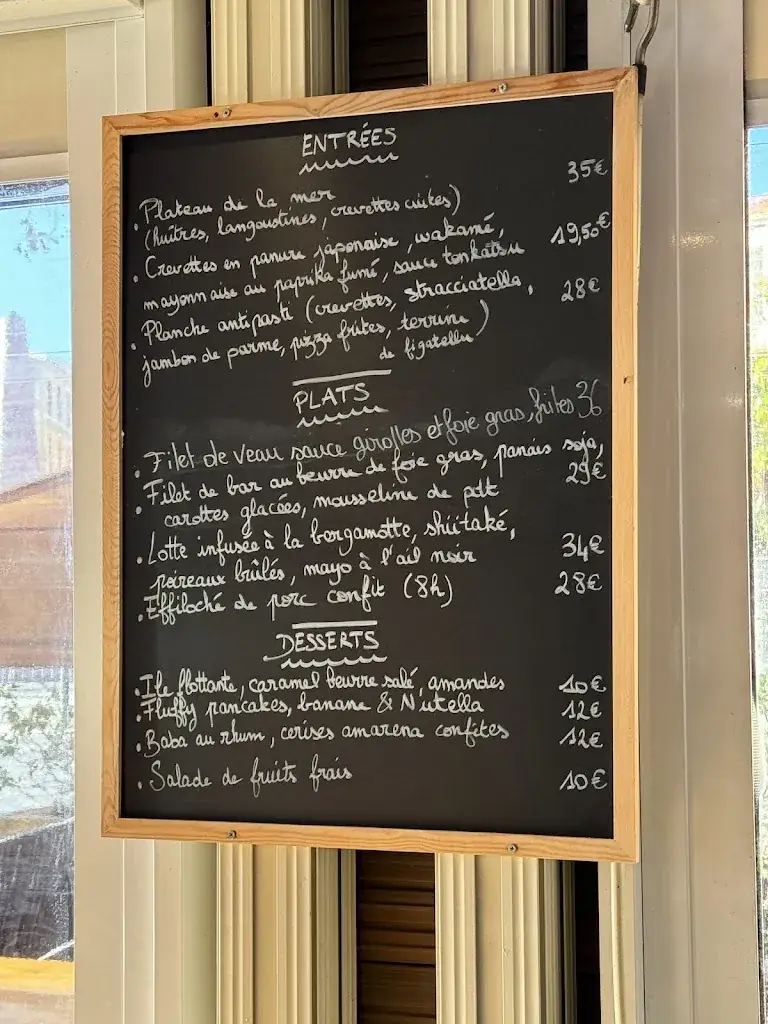 ENTRÉES
. Plateau de la mer 35€
(huîtres, langoustines, crevettes cuites)
. Crevettes en panure japonaise, wakamé, 19,50€
mayonnaise au paprika fumé, sauce tonkatsu
. Planche antipasti (crevettes, stracciatella, 28€
jambon de parme, pizza frites, terrine
de figatellu)
PLATS
. Filet de veau sauce girolles et foie gras, frites 36
. Filet de bar au beurre de foie gras, panais soja,
carottes glacées, mousseline de pdt 29€
. Lotte infusée à la bergamotte, shiitaké,
poireaux brûlés, mayo à l'ail noir 34€
. Effiloché de porc confit (8h) 28€
DESSERTS
. Ile flottante, caramel beurre salé, amandes 10€
. Fluffy pancakes, banane & Nutella 12€
. Baba au rhum, cerises amarena confites 12€
. Salade de fruits frais 10€